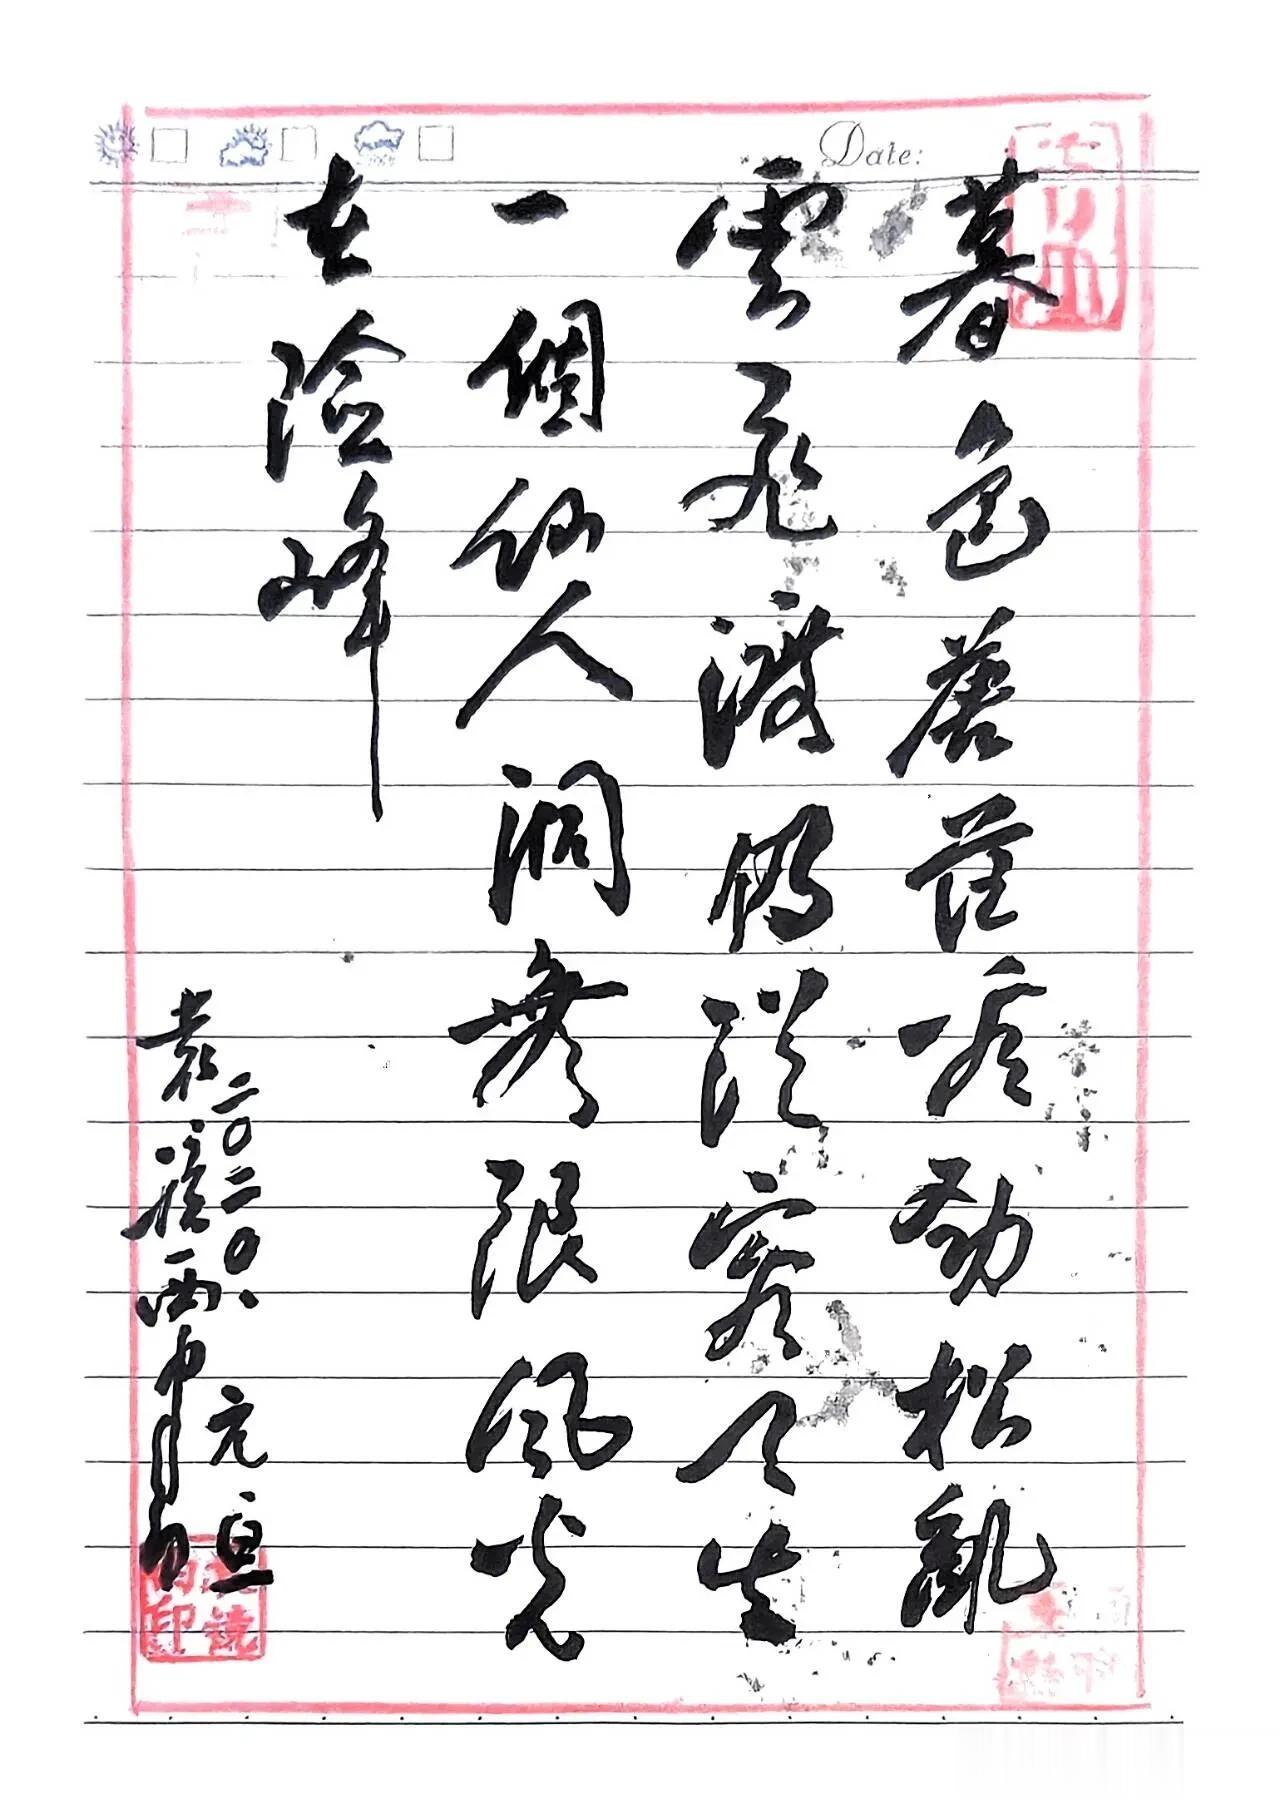 Date:
暮色蒼茫看劲松亂
雲飛渡仍從容天生
一個仙人洞無限風光
在险峰
二〇二〇、元旦
袁